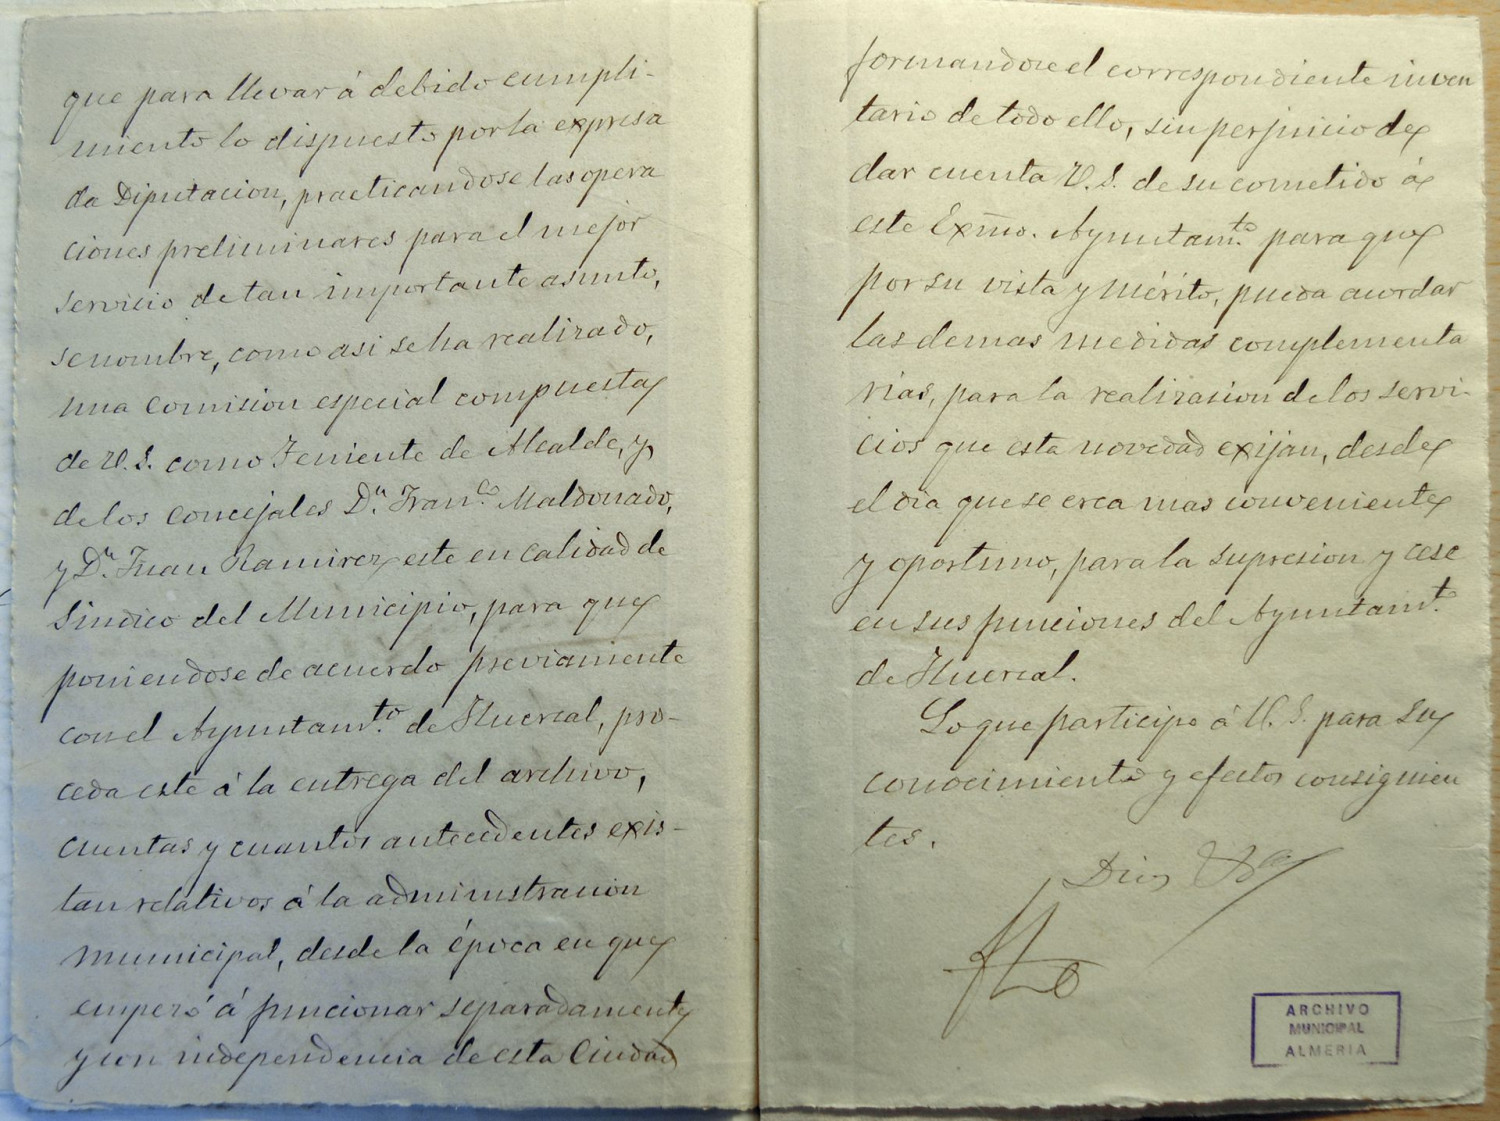 que para llevar á debido cumpli-
miento lo dispuesto por la expresa
da Diputacion, practicandose las opera
ciones preliminares para el mejor
servicio de tan importante asunto,
se nombre, como asi se ha realizado,
una Comision especial compuesta
de V. S. como Teniente de Alcalde, y
de los Concejales Dn. Franco. Maldonado,
y Dn. Juan Ramirez este en calidad de
Sindico del Municipio, para que
poniendose de acuerdo previamente
con el Ayuntamto. de Huercal, pro-
ceda este á la entrega del archivo,
cuentas y cuantos antecedentes exis-
tan relativos á la administracion
municipal, desde la época en que
empezó á funcionar separadamente
y con independencia de esta Ciudad
formandose el correspondiente inven
tario de todo ello, sin perjuicio de
dar cuenta V. S. de su cometido á
este Exmo. Ayuntamto. para que
por su vista y mérito, pueda acordar
las demas medidas complementa
rias, para la realizacion de los servi-
cios que esta novedad exijan, desde
el dia que se crea mas conveniente
y oportuno, para la supresion y cese
en sus funciones del Ayuntamto.
de Huercal.
Lo que participo á V. S. para su
conocimiento y efectos consiguien
tes.
Dios
ARCHIVO
MUNICIPAL
ALMERIA